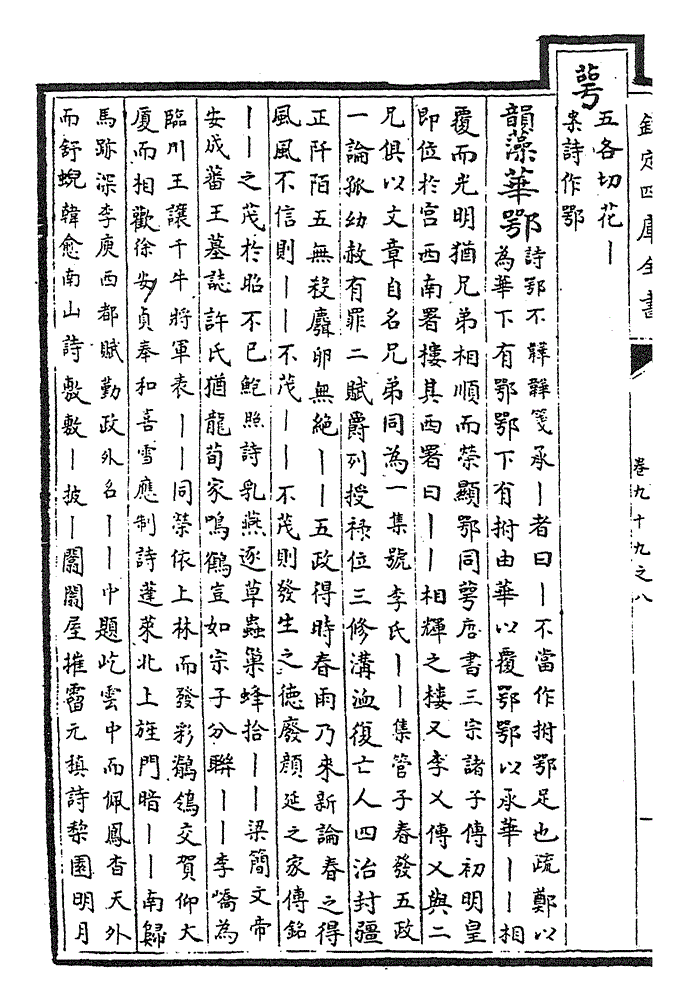 欽定四庫全書
卷九十九之八
蕚
五各切花丨
案詩作鄂
韻藻華鄂
詩鄂不韡韡箋承丨者曰丨不當作拊鄂足也疏鄭以
為華下有鄂鄂下有拊由華以覆鄂鄂以承華丨丨相
覆而光明猶兄弟相順而榮顯鄂同蕚唐書三宗諸子傳初明皇
即位於宮西南署樓其西署曰丨丨相輝之樓又李乂傳乂與二
兄俱以文章自名兄弟同為一集號李氏丨丨集管子春發五政
一論孤幼赦有罪二賦爵列授祿位三修溝洫復亡人四治封疆
正阡陌五無殺麑卵無絕丨丨五政得時春雨乃來新論春之得
風風不信則丨丨不茂丨丨不茂則發生之德廢顔延之家傳銘
丨丨之茂於昭不已鮑照詩乳燕逐草蟲巢蜂拾丨丨梁簡文帝
安成蕃王墓誌許氏猶龍荀家鳴鶴豈如宗子分聨丨丨李嶠為
臨川王讓千牛將軍表丨丨同榮依上林而發彩鶺鴒交賀仰大
厦而相歡徐安貞奉和喜雪應制詩蓬萊北上旌門暗丨丨南歸
馬跡深李庾西都賦勤政外名丨丨中題屹雲中而佩鳳杳天外
而舒蜺韓愈南山詩敷敷丨披丨闟闟屋摧霤元稹詩棃園明月